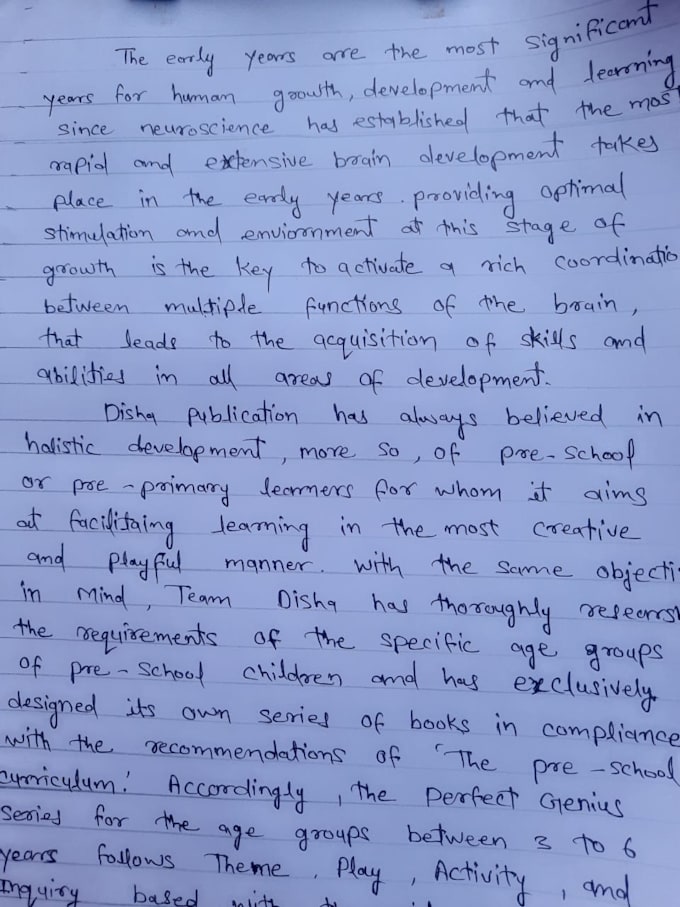 The early years are the most significant
years for human growth, development and learning
since neuroscience has established that the most
rapid and extensive brain development takes
place in the early years . providing optimal
stimulation and enviornment at this stage of
growth is the key to activate a rich coordinatio
between multiple functions of the brain ,
that leads to the acquisition of skills and
abilities in all areas of development.
Disha publication has always believed in
holistic development , more so , of pre - school
or pre - primary learners for whom it aims
at facilitaing learning in the most creative
and playful manner. with the same objecti
in Mind , Team Disha has thoroughly research
the requirements of the specific age groups
of pre - school children and has exclusively
designed its own series of books in compliance
with the recommendations of 'The pre - school
curriculum.' Accordingly , the perfect Genius
Series for the age groups between 3 to 6
years follows Theme , Play , Activity , and
Inquiry based with